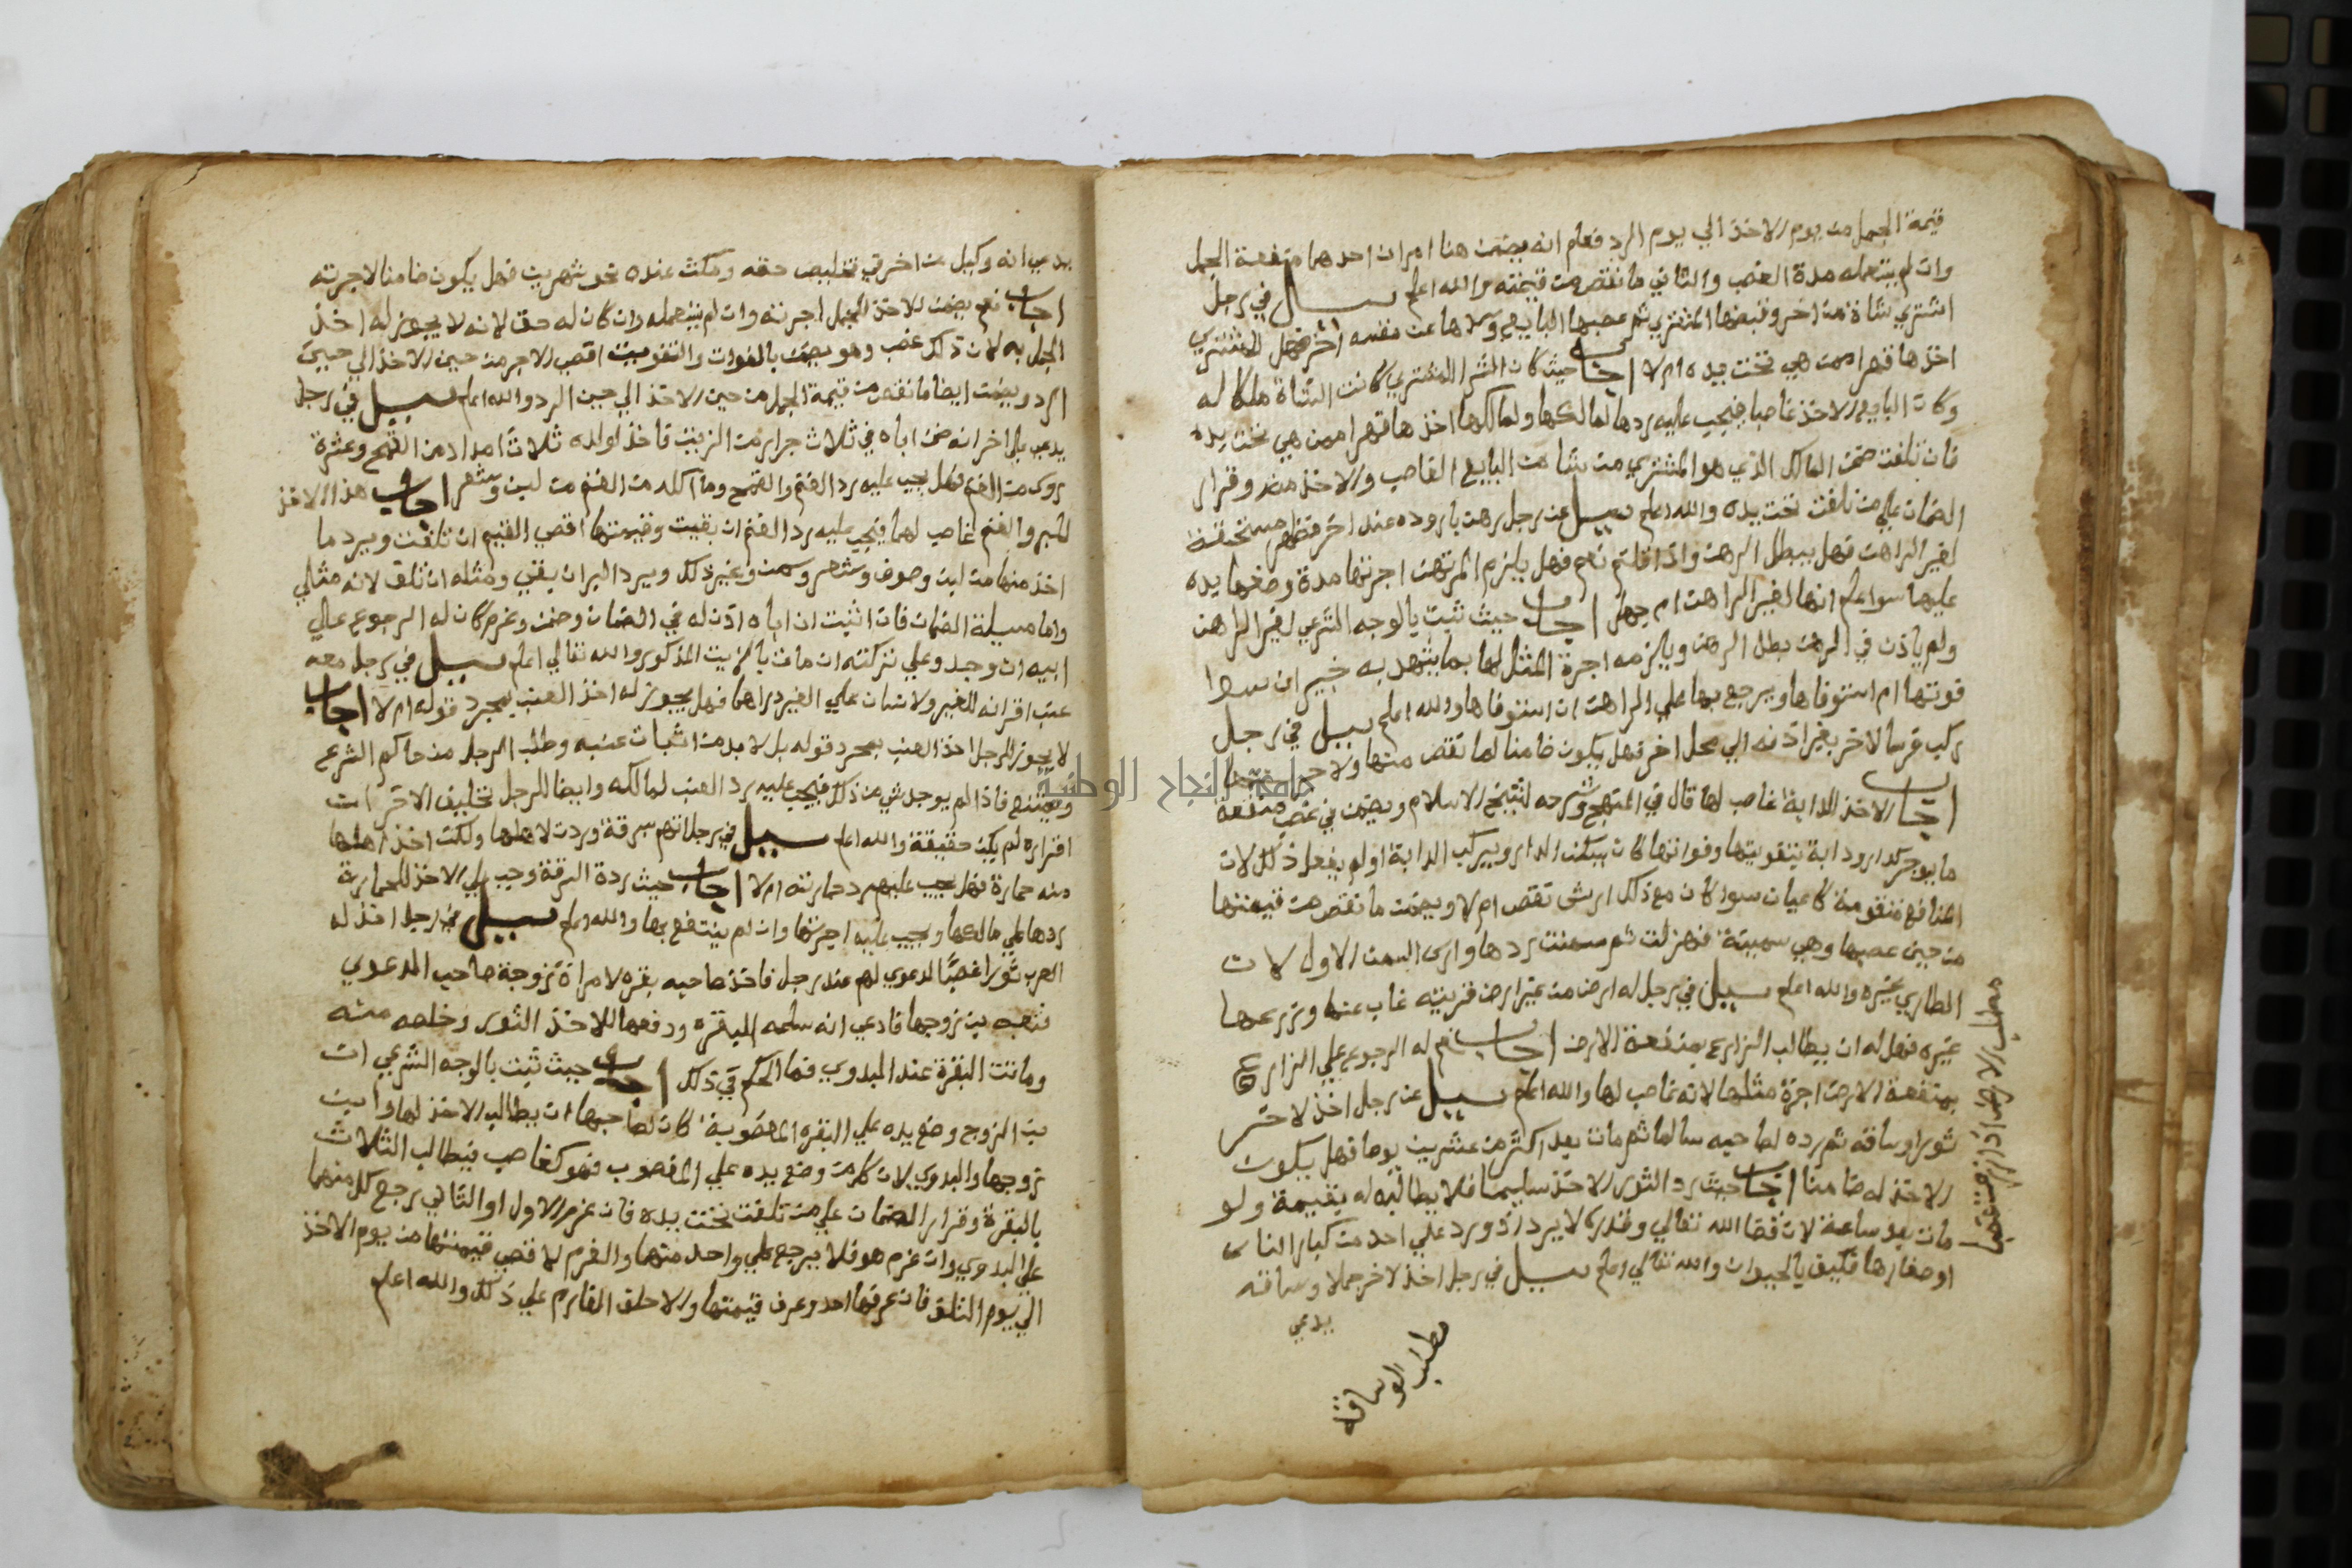 قيمة الجمل من يوم الاخذ الي يوم الرد فعلم انه يضمن هنا امران احدهما منفعة الجمل
وان لم يستعمله مدة الغصب والثاني ما نقص من قيمته والله اعلم سيل في رجل
اشتري شاة من اخر وقبضها المشتري ثم غصبها البايع وباعها عن نفسه اخر فهل للمشتري
اخذها قهرا ممن هي تحت يده ام لا اجاب حيث كان الشرا للمشتري كانت الشاة ملكا له
وكان البايع الاخذ غاصبا فيجب عليه ردها لمالكها ولمالكها اخذها قهرا ممن هي تحت يده
فان تلفت ضمن المالك الذي هو المشتري من شا من البايع الغاصب والاخذ منه وقرار
الضمان علي من تلفت تحت يده والله اعلم سيل عن رجل رهن باروده عند اخر فظهر مستحقة
لغير الراهن فهل يبطل الرهن واذا قلتم نعم فهل يلزم المرتهن اجرتها مدة وضعها يده
عليها سوا علم انها لغير الراهن ام جهل اجاب حيث ثبت بالوجه الشرعي لغير الراهن
ولم ياذن في الرهن بطل الرهن ويلزمه اجرة المثل لها بما يشهد به خبيران سوا
فوتها ام استوفاها ويرجع بها علي الراهن ان استوفاها والله اعلم سيل في رجل
ركب فرسا لاخر بغير اذنه الي محل اخر فهل يكون ضامنا لما نقص منها ولاجرتها
اجاب الاخذ الدابة غاصب لها قال في المنهج وشرحه لشيخ الاسلام ويضمن في غصب منفعة
ما يوجر كدار ودابة بتفويتها وفواتها كان يسكن الدار ويركب الدابة او لم يفعل ذلك لان
المنافع متقومة كالاعيان سوا كان مع ذلك ارش نقص ام لا ويضمن ما نقص من قيمتها
من حين غصبها وهي سمينة فهزلت ثم سمنت ردها وارش السمن الاول لان
الطاري غيره والله اعلم سيل في رجل له ارض من غير ارض قريته غاب عنها وزرعها
غيره فهل له ان يطالب الزارع بمنفعة الارض اجاب نعم له الرجوع علي الزارع
بمنفعة الارض اجرة مثلها لانه غاصب لها والله اعلم سيل عن رجل اخذ لاخر
ثورا وساقه ثم رده لصاحبه سالما ثم مات بعد اكثر من عشرين يوما فهل يكون
الاخذ له ضامنا اجاب حيث رد الثور الاخذ سليما فلا يطالبه له بقيمة ولو
مات بعد ساعة لان قضا الله تعالي وقدره لا يرد اذ ورد علي احد من كبار الناس
او صغارها فكيف بالحيوان والله تعالي اعلم سيل في رجل اخذ لاخر جملا وساقه
يدعي
مطلب الوساقه
يدعي انه وكيل عن اخر في تخليص حقه ومكث عنده نحو شهرين فهل يكون ضامنا لاجرته
اجاب نعم يضمن الاخذ للجمل اجرته وان لم يستعمله وان كان له حق لانه لا يجوز له اخذ
الجمل به لان ذلك غصب وهو يضمن بالفوات والتفويت اقصي الاجر من حين الاخذ الي حين
الرد ويضمن ايضا ما نقص من قيمة الجمل من حين الاخذ الي حين الرد والله اعلم سيل في رجل
يدعي علي اخر انه ضمن اباه في ثلاث جرار من الزيت فاخذ لولده ثلاث امداد من القمح وعشرة
روس من الغنم فهل يجب عليه رد الغنم والقمح وما اكله من الغنم من لبن وشعر اجاب هذا الاخذ
للبر والغنم غاصب لهما فيجب عليه رد الغنم ان بقيت وقيمتها اقصي القيم ان تلفت ويرد ما
اخذ منها من لبن وصوف وشعر وسمن وغير ذلك ويرد البر ان بقي ومثله ان تلف لانه مثلي
واما مسيلة الضمان فان اثبت ان اباه اذن له في الضمان وضمن وغرم كان له الرجوع علي
ابيه ان وجد وعلي تركته ان مات بالزيت المذكور والله تعالي اعلم سيل في رجل معه
عنب اقر انه للغير ولانسان علي الغير دراهما فهل يجوز له اخذ العنب بمجرد قوله ام لا اجاب
لا يجوز للرجل اخذ العنب بمجرد قوله بل لا بد من اثبات عنبه وطلب الرجل من حاكم الشرع
ويمتنع فاذا لم يوجد شي من ذلك فيجب عليه رد العنب لمالكه وايضا للرجل تحليف الاخر ان
اقراره لم يكن حقيقة والله اعلم سيل في رجل اتهم بسرقة وردت لاهلها ولكن اخذ اهلها
منه حمارة فهل يجب عليهم رد حمارته ام لا اجاب حيث ردة السرقة وجب علي الاخذ للحمارة
ردها علي مالكها ويجب عليه اجرتها وان لم ينتفع بها والله اعلم سيل في رجل اخذ له
العرب ثورا غصبا لدعوي لهم عند رجل فاخذ صاحبه بقره لامراة زوجة صاحب المدعوي
بين زوجها فادعي انه سلمه البقره ودفعها للاخذ الثور وخلصه منه
وماتت البقرة عند البدوي فما الحكم في ذلك اجاب حيث ثبت بالوجه الشرعي ان
الزوج وضع يده علي البقره المغصوبة كان لصاحبها ان يطالب الاخذ لها وابن
زوجها والبدوي لان كل من وضع يده علي المغصوب فهو كغاصب فيطالب الثلاث
بالبقرة وقرار الضمان علي من تلفت تحت يده فان غرم الاول او الثاني رجع كل منهما
علي البدوي وان غرم هو فلا يرجع علي واحد منهما والغرم لاقصي قيمتها من يوم الاخذ
الي يوم التلف فان عرفها احد وعرف قيمتها والا حلف الغارم علي ذلك والله اعلم
جامعة النجاح الوطنية